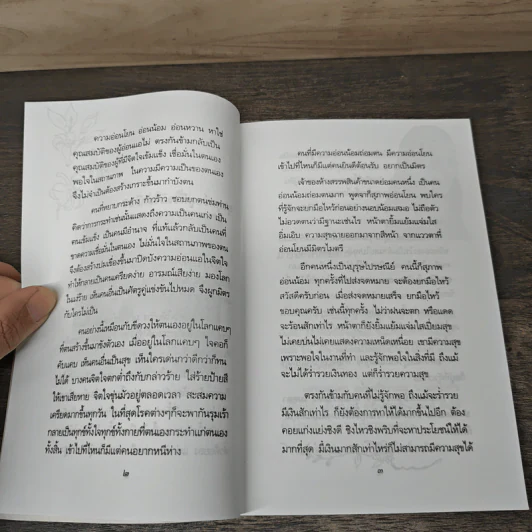 ความอ่อนโยน อ่อนน้อม อ่อนหวาน หาใช่
คุณสมบัติของผู้อ่อนแอไม่ ตรงกันข้ามกลับเป็น
คุณสมบัติของผู้ที่มีจิตใจเข้มแข็ง เชื่อมั่นในตนเอง
พอใจในสถานภาพ ในความมีความเป็นของตนเอง
จึงไม่จำเป็นต้องสร้างกระชั้นมากำบังตน
คนที่หยาบกระด้าง ก้าวร้าว ชอบยกตนข่มท่าน
คิดว่าการกระทำเช่นนั้นแสดงถึงความเป็นคนเก่ง เป็น
คนเข้มแข็ง เป็นคนมีอำนาจ ที่แท้แล้วกลับเป็นคนที่
ขาดความเชื่อมั่นในตนเอง ไม่มั่นใจในสถานภาพของตน
จึงต้องสร้างปมเขื่องขึ้นมาปิดบังความอ่อนแอในจิตใจ
ทำให้กลายเป็นคนเครียดง่าย อารมณ์เสียง่าย มองโลก
ในแง่ร้าย เห็นคนอื่นเป็นศัตรูคู่แข่งขันไปหมด จึงผูกมิตร
กับใครไม่เป็น
คนอย่างนี้เหมือนกับขีดวงให้ตนเองอยู่ในโลกแคบๆ
ที่ตนสร้างขึ้นมาขังตัวเอง เมื่ออยู่ในโลกแคบๆ ใจคอก็
คับแคบ เห็นคนอื่นเป็นสุข เห็นใครเด่นกว่าดีกว่าก็ทน
ไม่ได้ บางคนจิตใจตกต่ำถึงกับกล่าวร้าย ใส่ร้ายป้ายสี
ให้เขาเสียหาย จิตใจขุ่นมัวอยู่ตลอดเวลา สะสมความ
เครียดมากขึ้นทุกวัน ในที่สุดโรคต่างๆก็จะพากันรุมเร้า
กลายเป็นทุกข์ทั้งใจทุกข์ทั้งกายที่ตนเองกระทำแก่ตนเอง
ทั้งสิ้น เข้าไปที่ไหนก็มีแต่คนอยากหนีห่าง
๒
คนที่มีความอ่อนน้อมถ่อมตน มีความอ่อนโยน
เข้าไปที่ไหนก็มีแต่คนยินดีต้อนรับ อยากเป็นมิตร
เจ้าของห้างสรรพสินค้าขนาดย่อมคนหนึ่ง เป็นคน
อ่อนน้อมถ่อมตนมาก พูดจาก็สุภาพอ่อนโยน พบใคร
ที่รู้จักจะยกมือไหว้ก่อนอย่างนอบน้อมเสมอ ไม่ถือตัว
ไม่อวดตนว่ามีฐานะเช่นไร หน้าตายิ้มแย้มแจ่มใส
อิ่มเอิบ ความสุขฉายออกมาจากสีหน้า จากแววตาที่
อ่อนโยนมีมิตรไมตรี
อีกคนหนึ่งเป็นบุรุษไปรษณีย์ คนนี้ก็สุภาพ
อ่อนน้อม ทุกครั้งที่ไปส่งจดหมาย จะต้องยกมือไหว้
สวัสดีครับก่อน เมื่อส่งจดหมายเสร็จ ยกมือไหว้
ขอบคุณครับ เช่นนี้ทุกครั้ง ไม่ว่าฝนจะตก หรือแดด
จะร้อนสักเท่าไร หน้าตาก็ยังยิ้มแย้มแจ่มใสเปี่ยมสุข
ไม่เคยบ่นไม่เคยแสดงความเหน็ดเหนื่อย เขามีความสุข
เพราะพอใจในงานที่ทำ และรู้จักพอใจในสิ่งที่มี ถึงแม้
จะไม่ได้ร่ำรวยเงินทอง แต่ก็ร่ำรวยความสุข
ตรงกันข้ามกับคนที่ไม่รู้จักพอ ถึงแม้จะร่ำรวย
มีเงินสักเท่าไร ก็ยังต้องการหาให้ได้มากขึ้นไปอีก ต้อง
คอยแก่งแย่งชิงดี ชิงไหวชิงพริบที่จะหาประโยชน์ให้ได้
มากที่สุด มีเงินมากสักเท่าไหร่ก็ไม่สามารถมีความสุขได้
๓